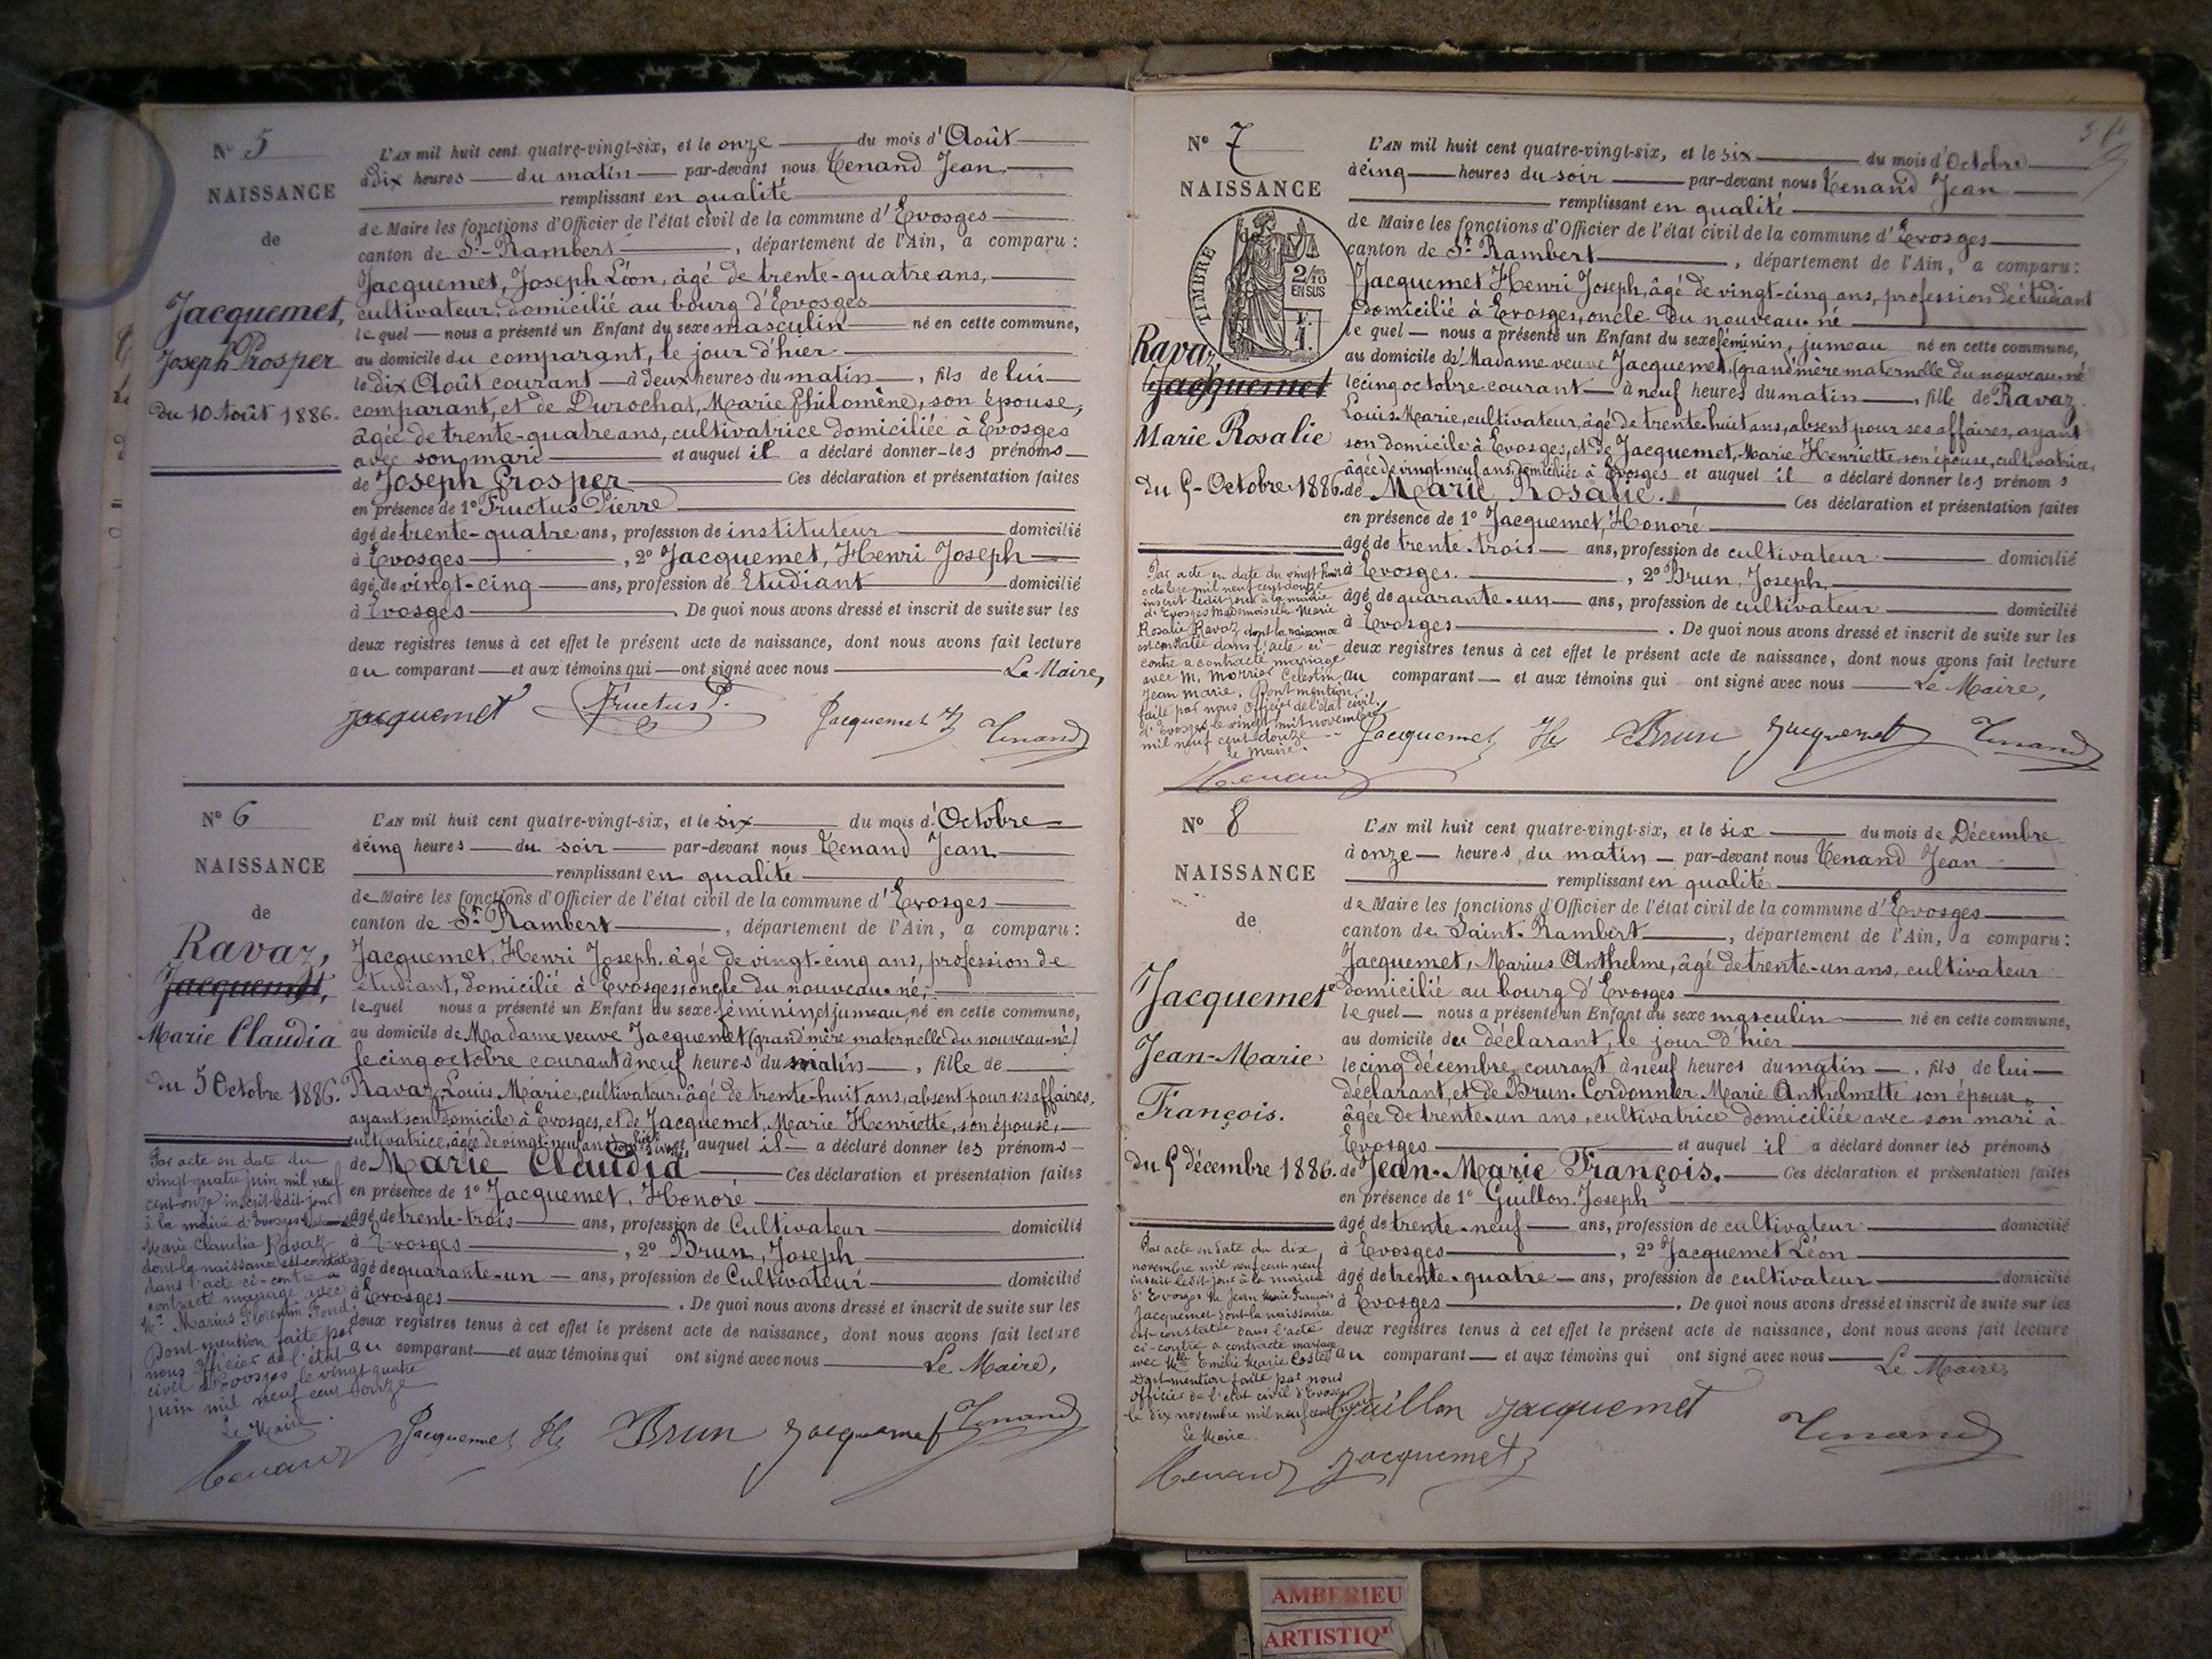 N° 5
NAISSANCE
de
Jacquemet,
Joseph Prosper
du 10 Août 1886.
L'AN mil huit cent quatre-vingt-six, et le onze du mois d'Août
à dix heures du matin par-devant nous Tenand Jean
remplissant en qualité
de Maire les fonctions d'Officier de l'état civil de la commune d'Evosges
canton de St-Rambert, département de l'Ain, a comparu :
Jacquemet, Joseph Léon, âgé de trente-quatre ans,
cultivateur, domicilié au bourg d'Evosges
lequel nous a présenté un Enfant du sexe masculin né en cette commune,
au domicile du comparant, le jour d'hier
le dix Août courant à deux heures du matin, fils de lui
comparant, et de Durochat, Marie Philomène, son épouse,
âgée de trente-quatre ans, cultivatrice domiciliée à Evosges
avec son mari et auquel il a déclaré donner les prénoms
de Joseph Prosper Ces déclaration et présentation faites
en présence de 1° Fructus Pierre
âgé de trente-quatre ans, profession de instituteur domicilié
à Evosges, 2° Jacquemet, Henri Joseph
âgé de vingt-cinq ans, profession de Etudiant domicilié
à Evosges. De quoi nous avons dressé et inscrit de suite sur les
deux registres tenus à cet effet le présent acte de naissance, dont nous avons fait lecture
au comparant et aux témoins qui ont signé avec nous Le Maire,
Jacquemet Fructus P. Jacquemet H Tenand
N° 6
NAISSANCE
de
Ravaz,
Jacquemet,
Marie Claudia
du 5 Octobre 1886.
L'AN mil huit cent quatre-vingt-six, et le six du mois d'Octobre
à cinq heures du soir par-devant nous Tenand Jean
remplissant en qualité
de Maire les fonctions d'Officier de l'état civil de la commune d'Evosges
canton de St Rambert, département de l'Ain, a comparu :
Jacquemet, Henri Joseph, âgé de vingt-cinq ans, profession de
étudiant, domicilié à Evosges, oncle du nouveau-né,
lequel nous a présenté un Enfant du sexe féminin, et jumeau, né en cette commune,
au domicile de Madame veuve Jacquemet (grand'mère maternelle du nouveau-né)
le cinq octobre courant à neuf heures du matin, fille de
Ravaz, Louis Marie, cultivateur, âgé de trente-huit ans, absent pour ses affaires,
ayant son domicile à Evosges, et de Jacquemet, Marie Henriette, son épouse,
cultivatrice, âgée de vingt-neuf ans, et auquel il a déclaré donner les prénoms
de Marie Claudia Ces déclaration et présentation faites
en présence de 1° Jacquemet, Honoré
âgé de trente-trois ans, profession de Cultivateur domicilié
à Evosges, 2° Brun, Joseph
âgé de quarante-un ans, profession de Cultivateur domicilié
à Evosges. De quoi nous avons dressé et inscrit de suite sur les
deux registres tenus à cet effet le présent acte de naissance, dont nous avons fait lecture
au comparant et aux témoins qui ont signé avec nous Le Maire,
Par acte en date du
vingt-quatre juin mil neuf
cent-onze inscrit ledit jour
à la mairie d'Evosges
Marie Claudia Ravaz
dont la naissance est constatée
dans l'acte ci-contre a
contracté mariage avec
Mr Marius Florentin Fond.
Dont mention faite par
nous officier de l'état
civil d'Evosges le vingt-quatre
juin mil neuf cent onze
Le Maire.
Tenand Jacquemet H Brun Jacquemet Tenand
N° 7
NAISSANCE
TIMBRE
2/10
EN SUS
1F.
Ravaz
Jacquemet
Marie Rosalie
du 5 Octobre 1886.
L'AN mil huit cent quatre-vingt-six, et le six du mois d'Octobre
à cinq heures du soir par-devant nous Tenand Jean
remplissant en qualité
de Maire les fonctions d'Officier de l'état civil de la commune d'Evosges
canton de St Rambert, département de l'Ain, a comparu :
Jacquemet Henri Joseph, âgé de vingt-cinq ans, profession de étudiant
domicilié à Evosges, oncle du nouveau-né
lequel nous a présenté un Enfant du sexe féminin, jumeau né en cette commune,
au domicile de Madame veuve Jacquemet, (grand'mère maternelle du nouveau-né
le cinq octobre courant à neuf heures du matin, fille de Ravaz
Louis Marie, cultivateur, âgé de trente-huit ans, absent pour ses affaires, ayant
son domicile à Evosges, et de Jacquemet, Marie Henriette son épouse, cultivatrice,
âgée de vingt-neuf ans, domiciliée à Evosges et auquel il a déclaré donner les prénoms
de Marie Rosalie. Ces déclaration et présentation faites
en présence de 1° Jacquemet, Honoré
âgé de trente-trois ans, profession de cultivateur domicilié
à Evosges, 2° Brun, Joseph
âgé de quarante-un ans, profession de cultivateur domicilié
à Evosges. De quoi nous avons dressé et inscrit de suite sur les
deux registres tenus à cet effet le présent acte de naissance, dont nous avons fait lecture
au comparant et aux témoins qui ont signé avec nous Le Maire,
Par acte en date du vingt huit
octobre mil neuf cent douze
inscrit ledit jour à la mairie
d'Evosges Mademoiselle Marie
Rosalie Ravaz dont la naissance
est constatée dans l'acte ci-
contre a contracté mariage
avec M. Morrier Célestin
Jean Marie. Dont mention
faite par nous Officier de l'état civil
d'Evosges le vingt huit novembre
mil neuf cent douze
Le Maire.
Jacquemet H Brun Jacquemet Tenand
Tenand
N° 8
NAISSANCE
de
Jacquemet
Jean-Marie
François.
du 5 décembre 1886.
L'AN mil huit cent quatre-vingt-six, et le six du mois de Décembre
à onze heures du matin par-devant nous Tenand Jean
remplissant en qualité
de Maire les fonctions d'Officier de l'état civil de la commune d'Evosges
canton de Saint-Rambert, département de l'Ain, a comparu :
Jacquemet, Marius Anthelme, âgé de trente-un ans, cultivateur
domicilié au bourg d'Evosges
lequel nous a présenté un Enfant du sexe masculin né en cette commune,
au domicile du déclarant, le jour d'hier
le cinq décembre courant à neuf heures du matin, fils de lui
déclarant, et de Brun-Cordonnier Marie Anthelmette son épouse,
âgée de trente-un ans, cultivatrice domiciliée avec son mari à
Evosges et auquel il a déclaré donner les prénoms
de Jean-Marie François. Ces déclaration et présentation faites
en présence de 1° Guillon, Joseph
âgé de trente-neuf ans, profession de cultivateur domicilié
à Evosges, 2° Jacquemet Léon
âgé de trente-quatre ans, profession de cultivateur domicilié
à Evosges. De quoi nous avons dressé et inscrit de suite sur les
deux registres tenus à cet effet le présent acte de naissance, dont nous avons fait lecture
au comparant et aux témoins qui ont signé avec nous Le Maire,
Par acte en date du dix
novembre mil neuf cent neuf
inscrit ledit jour à la mairie
d'Evosges M Jean Marie François
Jacquemet dont la naissance
est constatée dans l'acte
ci-contre a contracté mariage
avec Mlle Emélie Marie Costel
Dont mention faite par nous
officier de l'état civil d'Evosges
le dix novembre mil neuf cent neuf
Le Maire.
Guillon Jacquemet Tenand
Tenand Jacquemet
AMBERIEU
ARTISTIQ